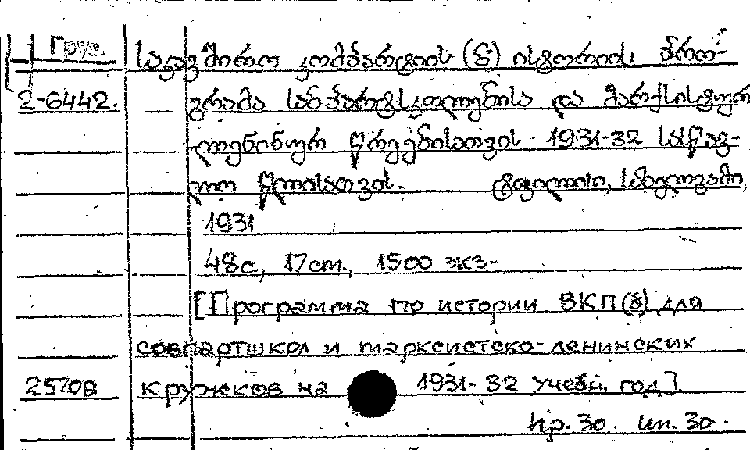 Груз. საკავშირო კომპარტიის (ბ) ისტორიის პრო-
2-6442. გრამა საბპარტსკოლებისა და მარქსისტურ
ლენინურ წრეებისათვის 1931-32 სასწავ-
ლო წლისათვის. ტფილისი, სახელგამი,
1931
48с., 17cm., 1500 экз-
[Программа по истории ВКП(б) для
совпартшкол и марксистско-ленинских
25708 кружков на 1931-32 учебн. год]
Нр. 30. ип. 30.